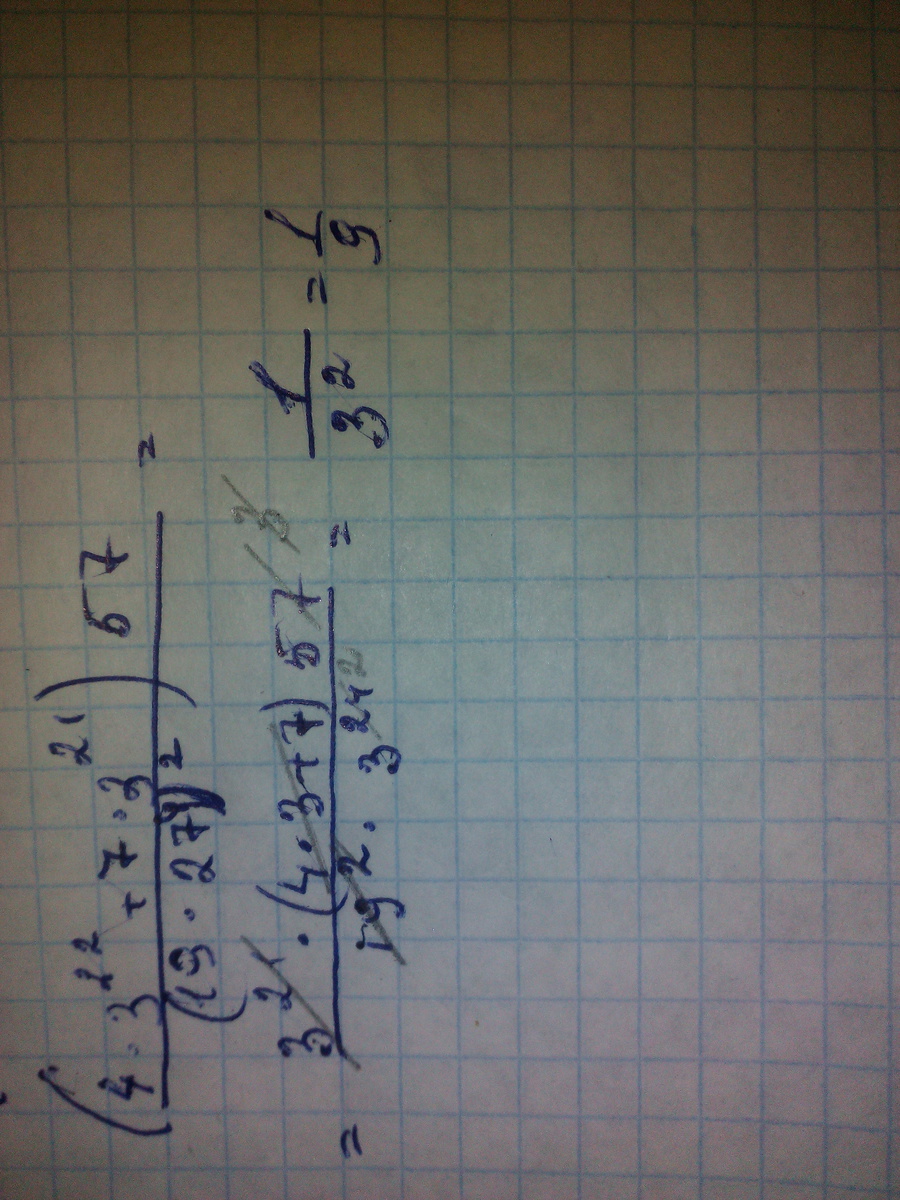 (4 · 3²² + 7 · 3²¹) 57 =
(19 · 27⁴)²
= 3²¹ · (4 · 3 + 7) 57 3 = 1 = 1
19² · 3²⁴ ² 3² 9